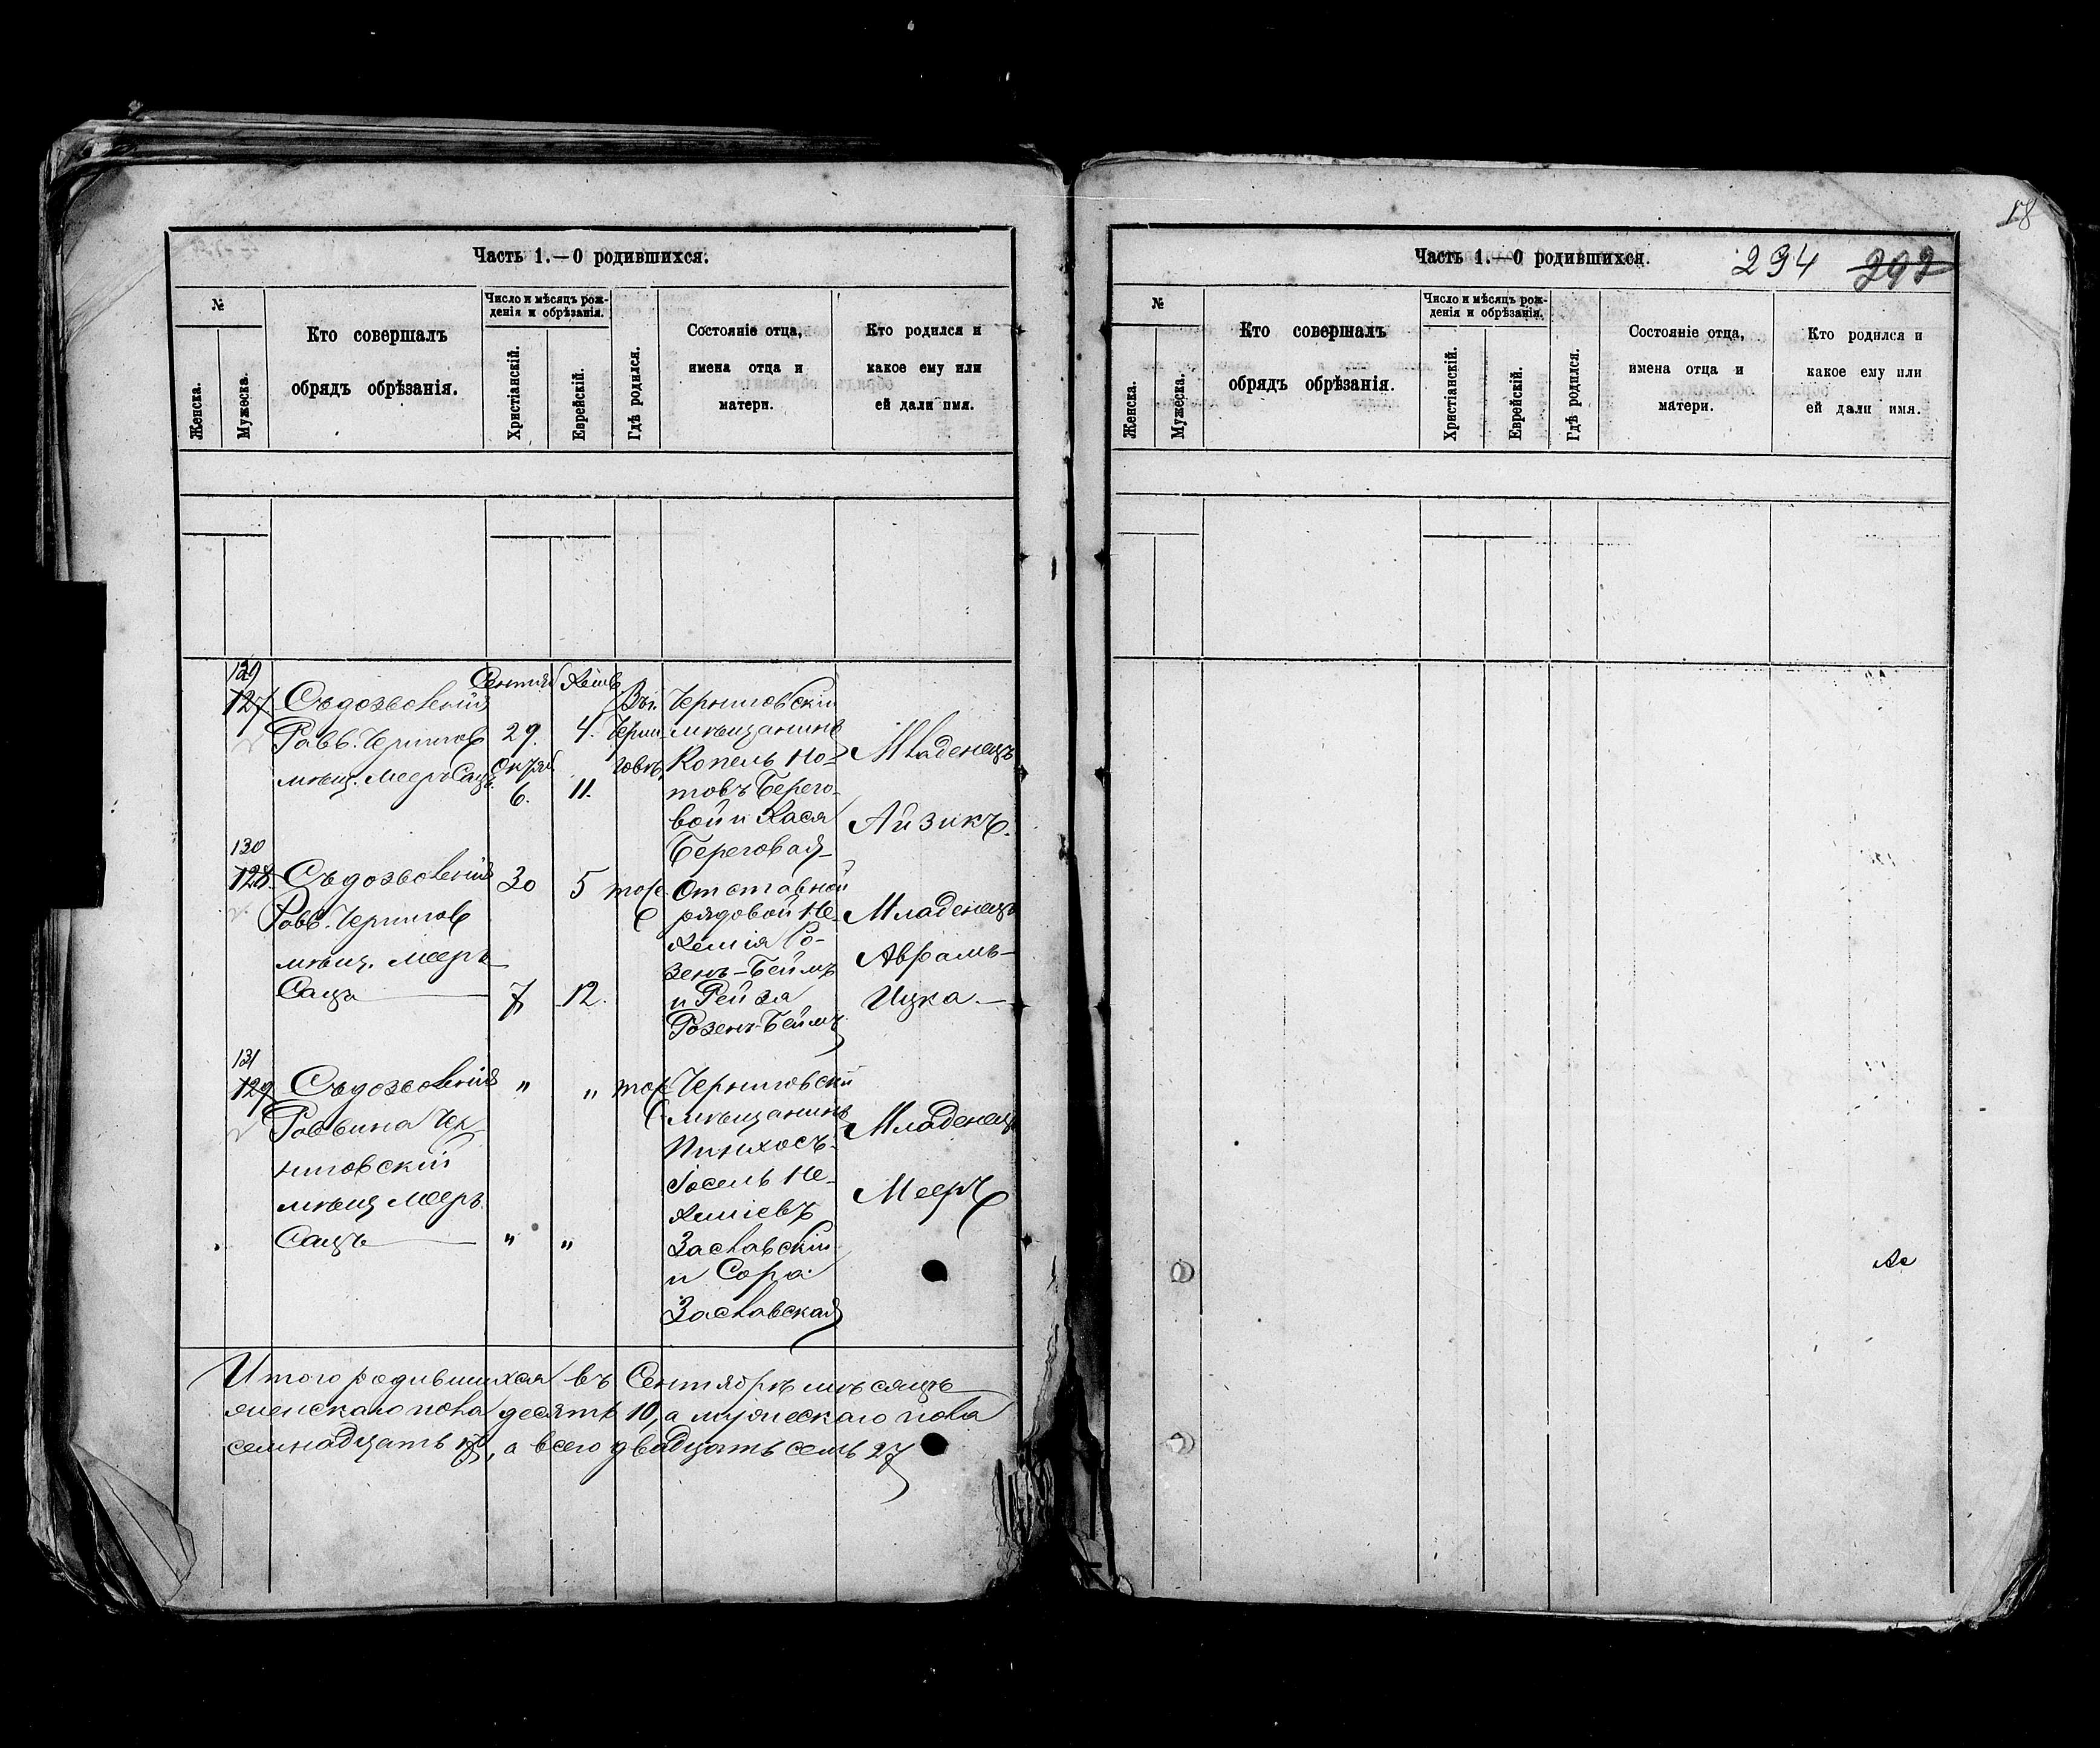 18
Часть 1.—О родившихся.
№
Женска.
Мужеска.
Кто совершалъ
обрядъ обрѣзанія.
Число и мѣсяцъ рож-
денія и обрѣзанія.
Христіанскій.
Еврейскій.
Гдѣ родился.
Состояніе отца,
имена отца и
матери.
Кто родился и
какое ему или
ей дали имя.
129
127
Съ дозволенія
Равв. Чернигов
мѣщ. Мееръ Сацъ.
Сентяб
29.
Октяб
6.
Хешв
4.
11.
Въ г.
Черни-
говѣ,
Черниговскій
мѣщанинъ
Копель Но-
товъ Берего-
вой и Хася
Береговая
Младенецъ
Айзикъ.
130
128
Съ дозволенія
Равв. Чернигов
мѣщ. Мееръ
Сацъ
30
7
5
12.
тоже
Отставной
рядовой Не-
хемія Ро-
зенъ-Беймъ
и Рейза
Розенъ-Беймъ
Младенецъ
Аврамъ-
Ицка.
131
129
Съ дозволенія
Раввина Чер
ниговскій
мѣщ Мееръ
Сацъ
"
"
"
"
тоже
Черниговскій
мѣщанинъ
Пинхосъ-
Іосель Не-
хеміевъ
Заславскій
и Сора
Заславская
Младенецъ
Мееръ
Итого родившихся въ Сентябрѣ мѣсяцѣ
женскаго пола десять 10, а мужескаго пола
семнадцать 17, а всего двадцать семь 27
Часть 1.—О родившихся.
294 292
№
Женска.
Мужеска.
Кто совершалъ
обрядъ обрѣзанія.
Число и мѣсяцъ рож-
денія и обрѣзанія.
Христіанскій.
Еврейскій.
Гдѣ родился.
Состояніе отца,
имена отца и
матери.
Кто родился и
какое ему или
ей дали имя.